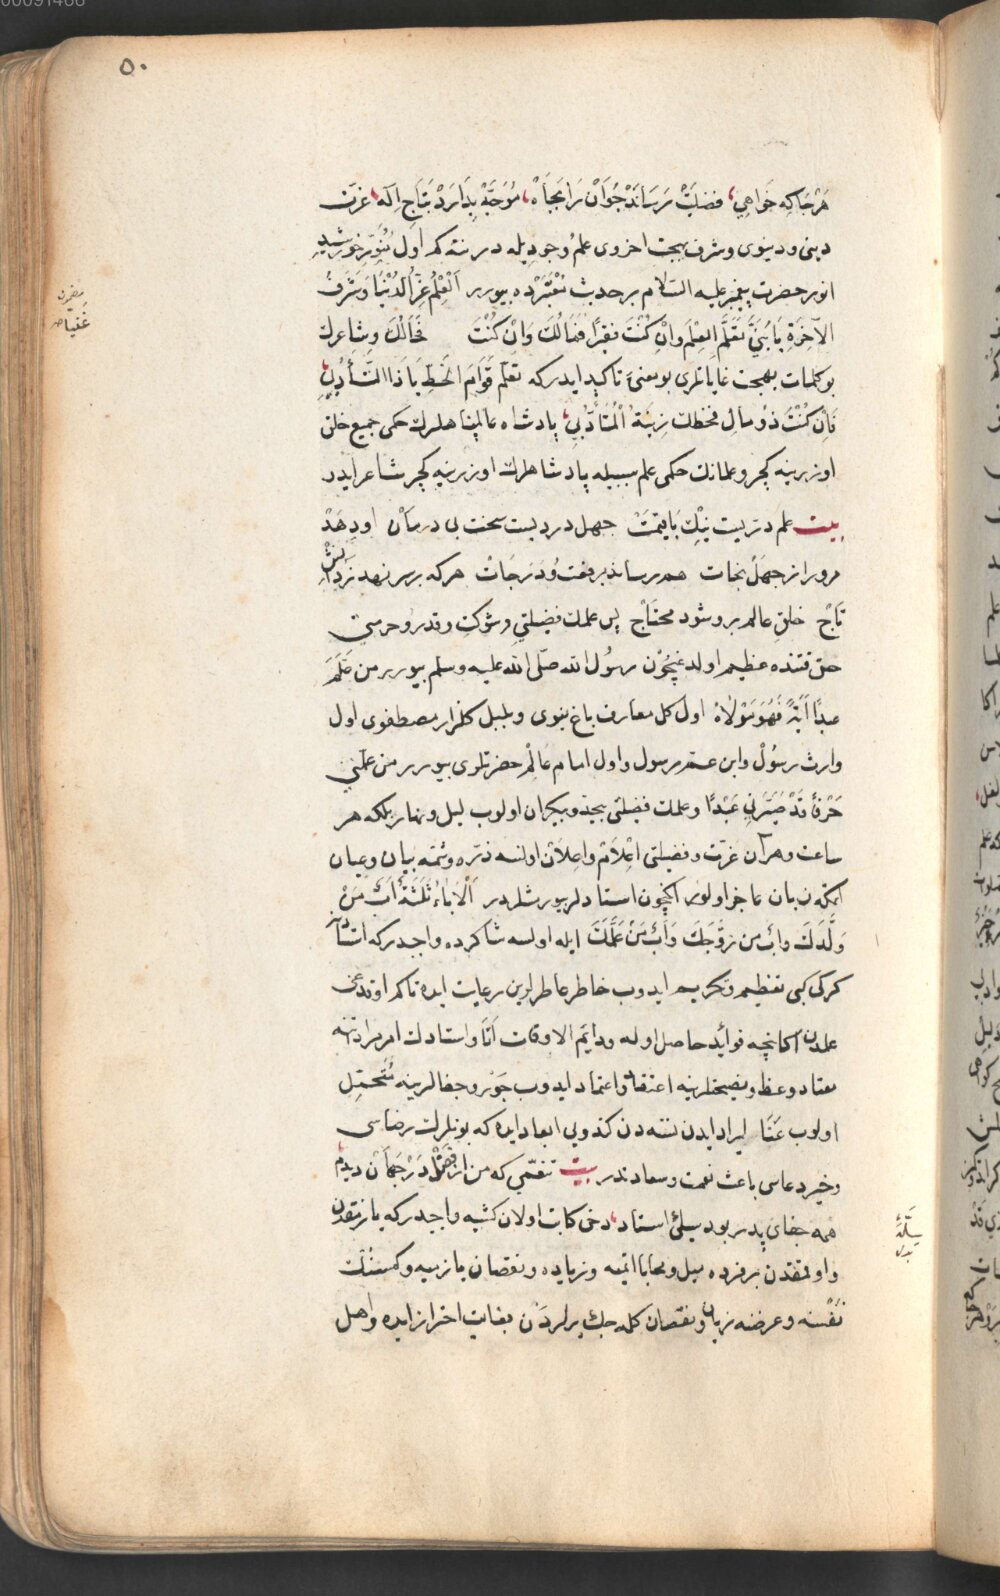 ٥٠
هر جا که خواهی فضیلت رساند جوان را بجاه موجه بدارد بتاج اله عزت
دینی ودنیوی وشرف بهجت اخروی علم وجودیله در نته کم اول منور خورشید
انور حضرت پیغمبر علیه السلام بر حدیث معتبرده بیورر اَلْعِلْمُ عِزُّ الدُّنْيَا وَشَرَفُ
الآخِرَةِ يَا بُنَيَّ تَعَلَّمِ الْعِلْمَ وَاِنْ كُنْتَ فقيرًا فَمَالُكَ وَاِنْ كُنْتَ فَجَمَالُكَ وشاعرك
بو کلمات بهجت غایاتلری بو معنی تأکید ایدرکه تعلم قوام الخط یا ذا التأدب
فَاِنْ كُنْتَ ذُو مال فخطك زِينَةُ الْمُتَأَدِّبِ پادشاه عالمپناهلرك حکمی جمیع خلق
اوزرینه کچر وعلمانك حکمی علم سببیله پادشاهلرك اوزرینه کچر شاعر ایدر
بیت علم دریست نیک باقیمت جهل دردیست سخت بی درمان اودهد
مرورا از جهل نجات هم رساند برفعت ودرجات هرکه بر سر نهد ز دانش
تاج خلق عالم برو شود محتاج پس علمك فضیلتی وشوکت وقدر وحرمتی
حق قتنده عظیم اولدغیچون رسول الله صلی الله علیه وسلم بیورر من علم
عبدًا آيَةً فَهُوَ مَوْلَاهُ اول کل معارف باغ نبوی وبلبل کلزار مصطفوی اول
وارث رسول وابن عم رسول واول امام عالم حضرتلری بیورر من علمنی
حَرْفًا قَدْ صَيَّرَنِي عَبْدًا وعلمك فضیلتی بیحد وبیکران اولوب لیل ونهار بلکه هر
ساعت وهر آن عزت وفضیلتی اعلام واعلان اولنسه ذره وشمه بیان وعیان
اتمکه زبان عاجز اولور انکیچون استادلر بیورمشلردر اَلْآبَاءُ ثَلَثَةٌ اَبٌ مَنْ
وَلَّدَكَ واب من زَوَّجَكَ وَأَبٌ مَنْ عَلَّمَكَ ایله اولسه شاکرده واجبدرکه استادینه
کرکی کبی تعظیم وتکریم ایدوب خاطر عاطرلرین رعایت ایده تاکم اوقودغی
علمدن اکا نیجه فواید حاصل اوله ودایم الاوقات اتا واستادك امر مرادینه
معتاد وعظ ونصیحتلرینه اعتقاد واعتماد ایدوب جور وجفالرینه متحمل
اولوب عنا ایراد ایدن نسنه دن کندویی ابعاد ایده که بونلرك رضاسی
وخیر دعاسی باعث نعمت وسعادتدر بیت تنعمی که من از فضل در جهان دیدم
همه جفای پدر بود سیلئ استاد دخی کاتب اولان کشیه واجبدرکه یازمقدن
واوقمقدن بر فرده میل ومحابا اتمیه وزیاده ونقصان یازمیه وکمسنك
نفسنه وعرضنه زیان ونقصان کله جك یرلردن بغایت احتراز ایده واهل
غنیا
سیله
بدل